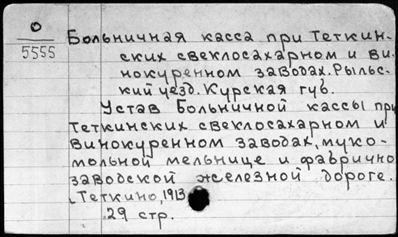 О
5555
Больничная касса при Теткин-
ских свеклосахарном и ви-
нокуренном заводах. Рыльс-
кий уезд. Курская губ.
Устав Больничной кассы при
Теткинских свеклосахарном и
винокуренном заводах, муко-
мольной мельнице и фабрично
заводской железной дороге.
Теткино, 1913
29 стр.